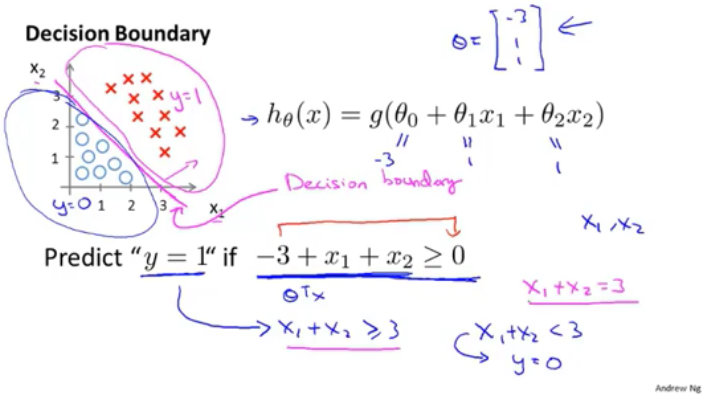 Decision Boundary
θ = [-3 1 1]
x₂
3
2
1
1 2 3
x₁
y=1
y=0
h_θ(x) = g(θ₀ + θ₁x₁ + θ₂x₂)
-3 1 1
Decision boundary
x₁, x₂
Predict "y = 1" if -3 + x₁ + x₂ ≥ 0
θᵀx
x₁ + x₂ = 3
x₁ + x₂ ≥ 3
x₁ + x₂ < 3
y=0
Andrew Ng